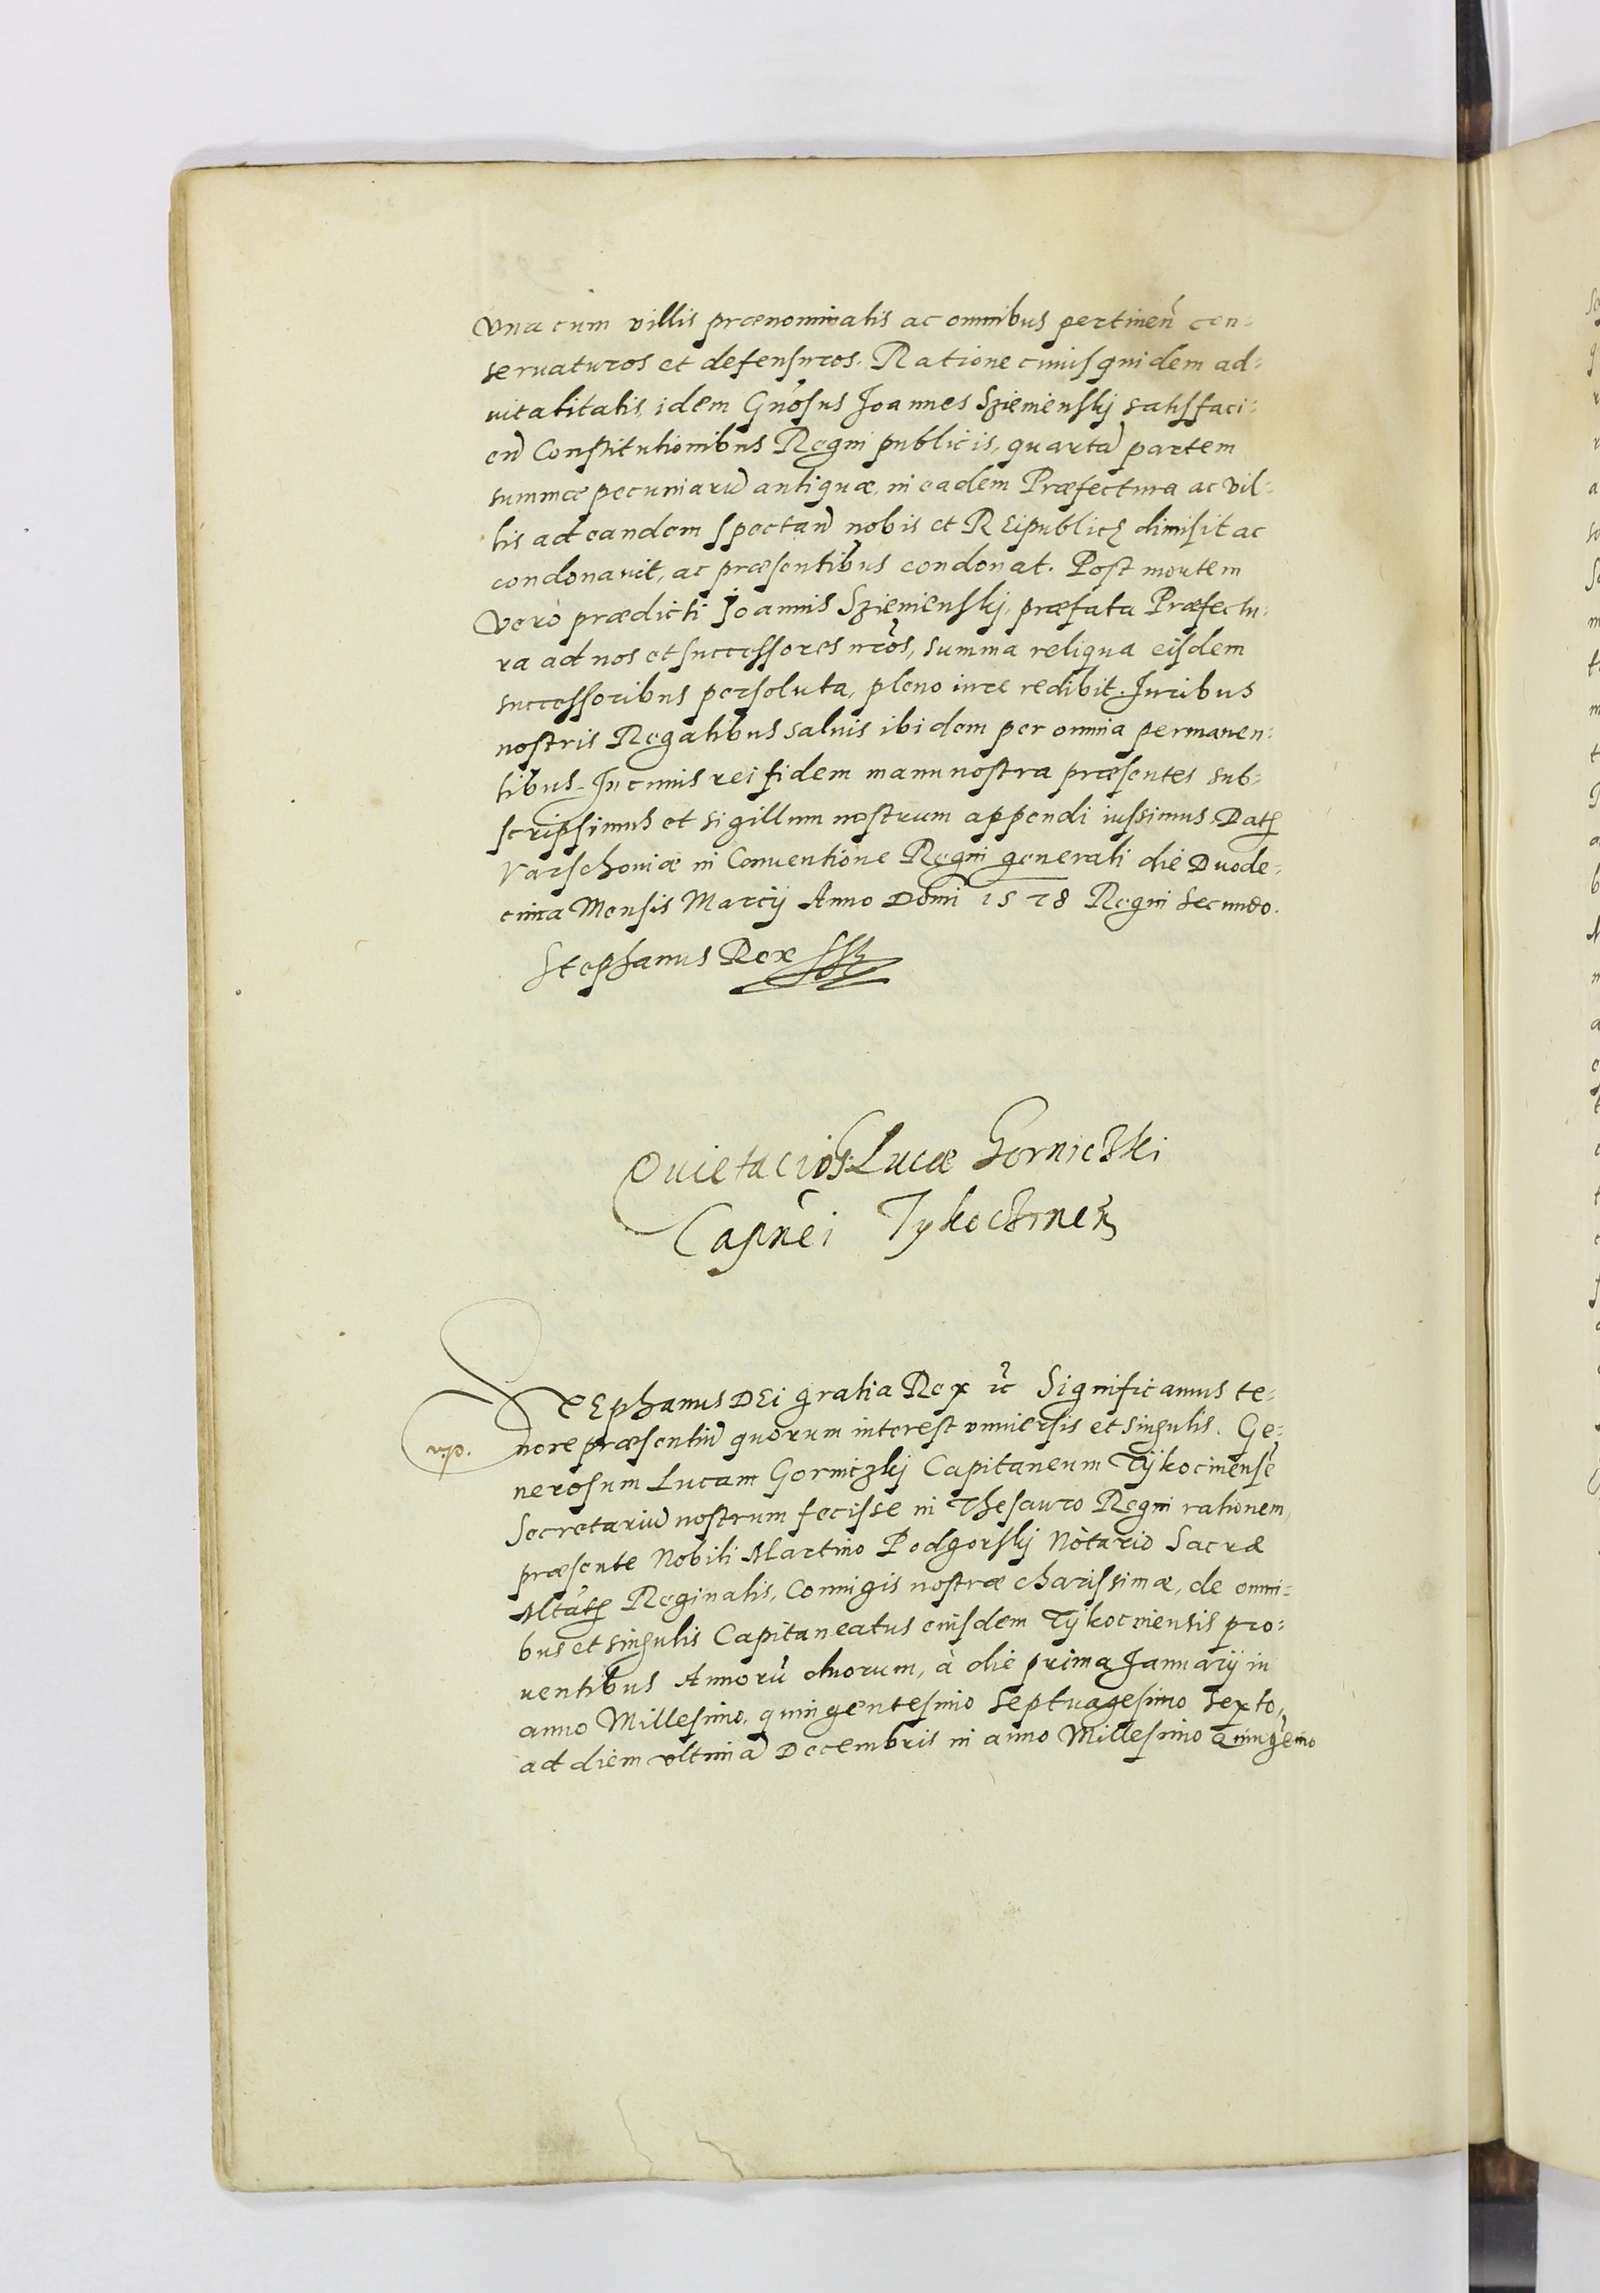 vna cum villis prænominatis ac omnibus pertineñ con=
seruaturos et defensuros. Ratione cuius quidem ad=
uitalitatis, idem Gn̄osus Joannes Szienienskj satisfaci=
eñ Constitutionibus Regni publicis, quartā partem
summæ pecuniarū antiquæ, in eadem Præfectura ac vil=
lis ad eandem spectañ nobis et REipublicę dimisit ac
condonauit, ac præsentibus condonat. Post mortem
vero prædicti Joannis Szienienskj, præfata Præfectu=
ra ad nos et successores nr̄os, summa reliqua eisdem
successoribus persoluta, pleno iure redibit. Juribus
nostris Regalibus saluis ibidem per omnia permanen=
tibus. In cuius rei fidem manu nostra præsentes sub=
scripsimus et sigillum nostrum appendi iussimus. Datę
Varschouiæ in Conuentione Regni generali die Duode=
cima Mensis Marcij Anno Domī 1578 Regni secundo.
Stephanus Rex ssz
Quietacios Lucæ Gornicski
Capnēi Tykocsineñ
STEphanus DEi gratia Rex ꝛc Significamus te=
nore præsentiū quorum interest vniuersis et singulis. Ge=
nerosum Lucam Gorniczkj Capitaneum Tÿkocinensē
Secretariū nostrum fecisse in Thesauro Regni rationem,
præsente Nobili Martino Podgorskj Notario Sacræ
Mtātę Reginalis, Coniugis nostræ charissimæ, de omni=
bus et singulis Capitaneatus eiusdem Tÿkociniensis pro=
uentibus Annorū duorum, à die prima Januarij in
anno Millesimo, quingentesimo septuagesimo sexto,
ad diem vltimā Decembris in anno Millesimo Quingēmo